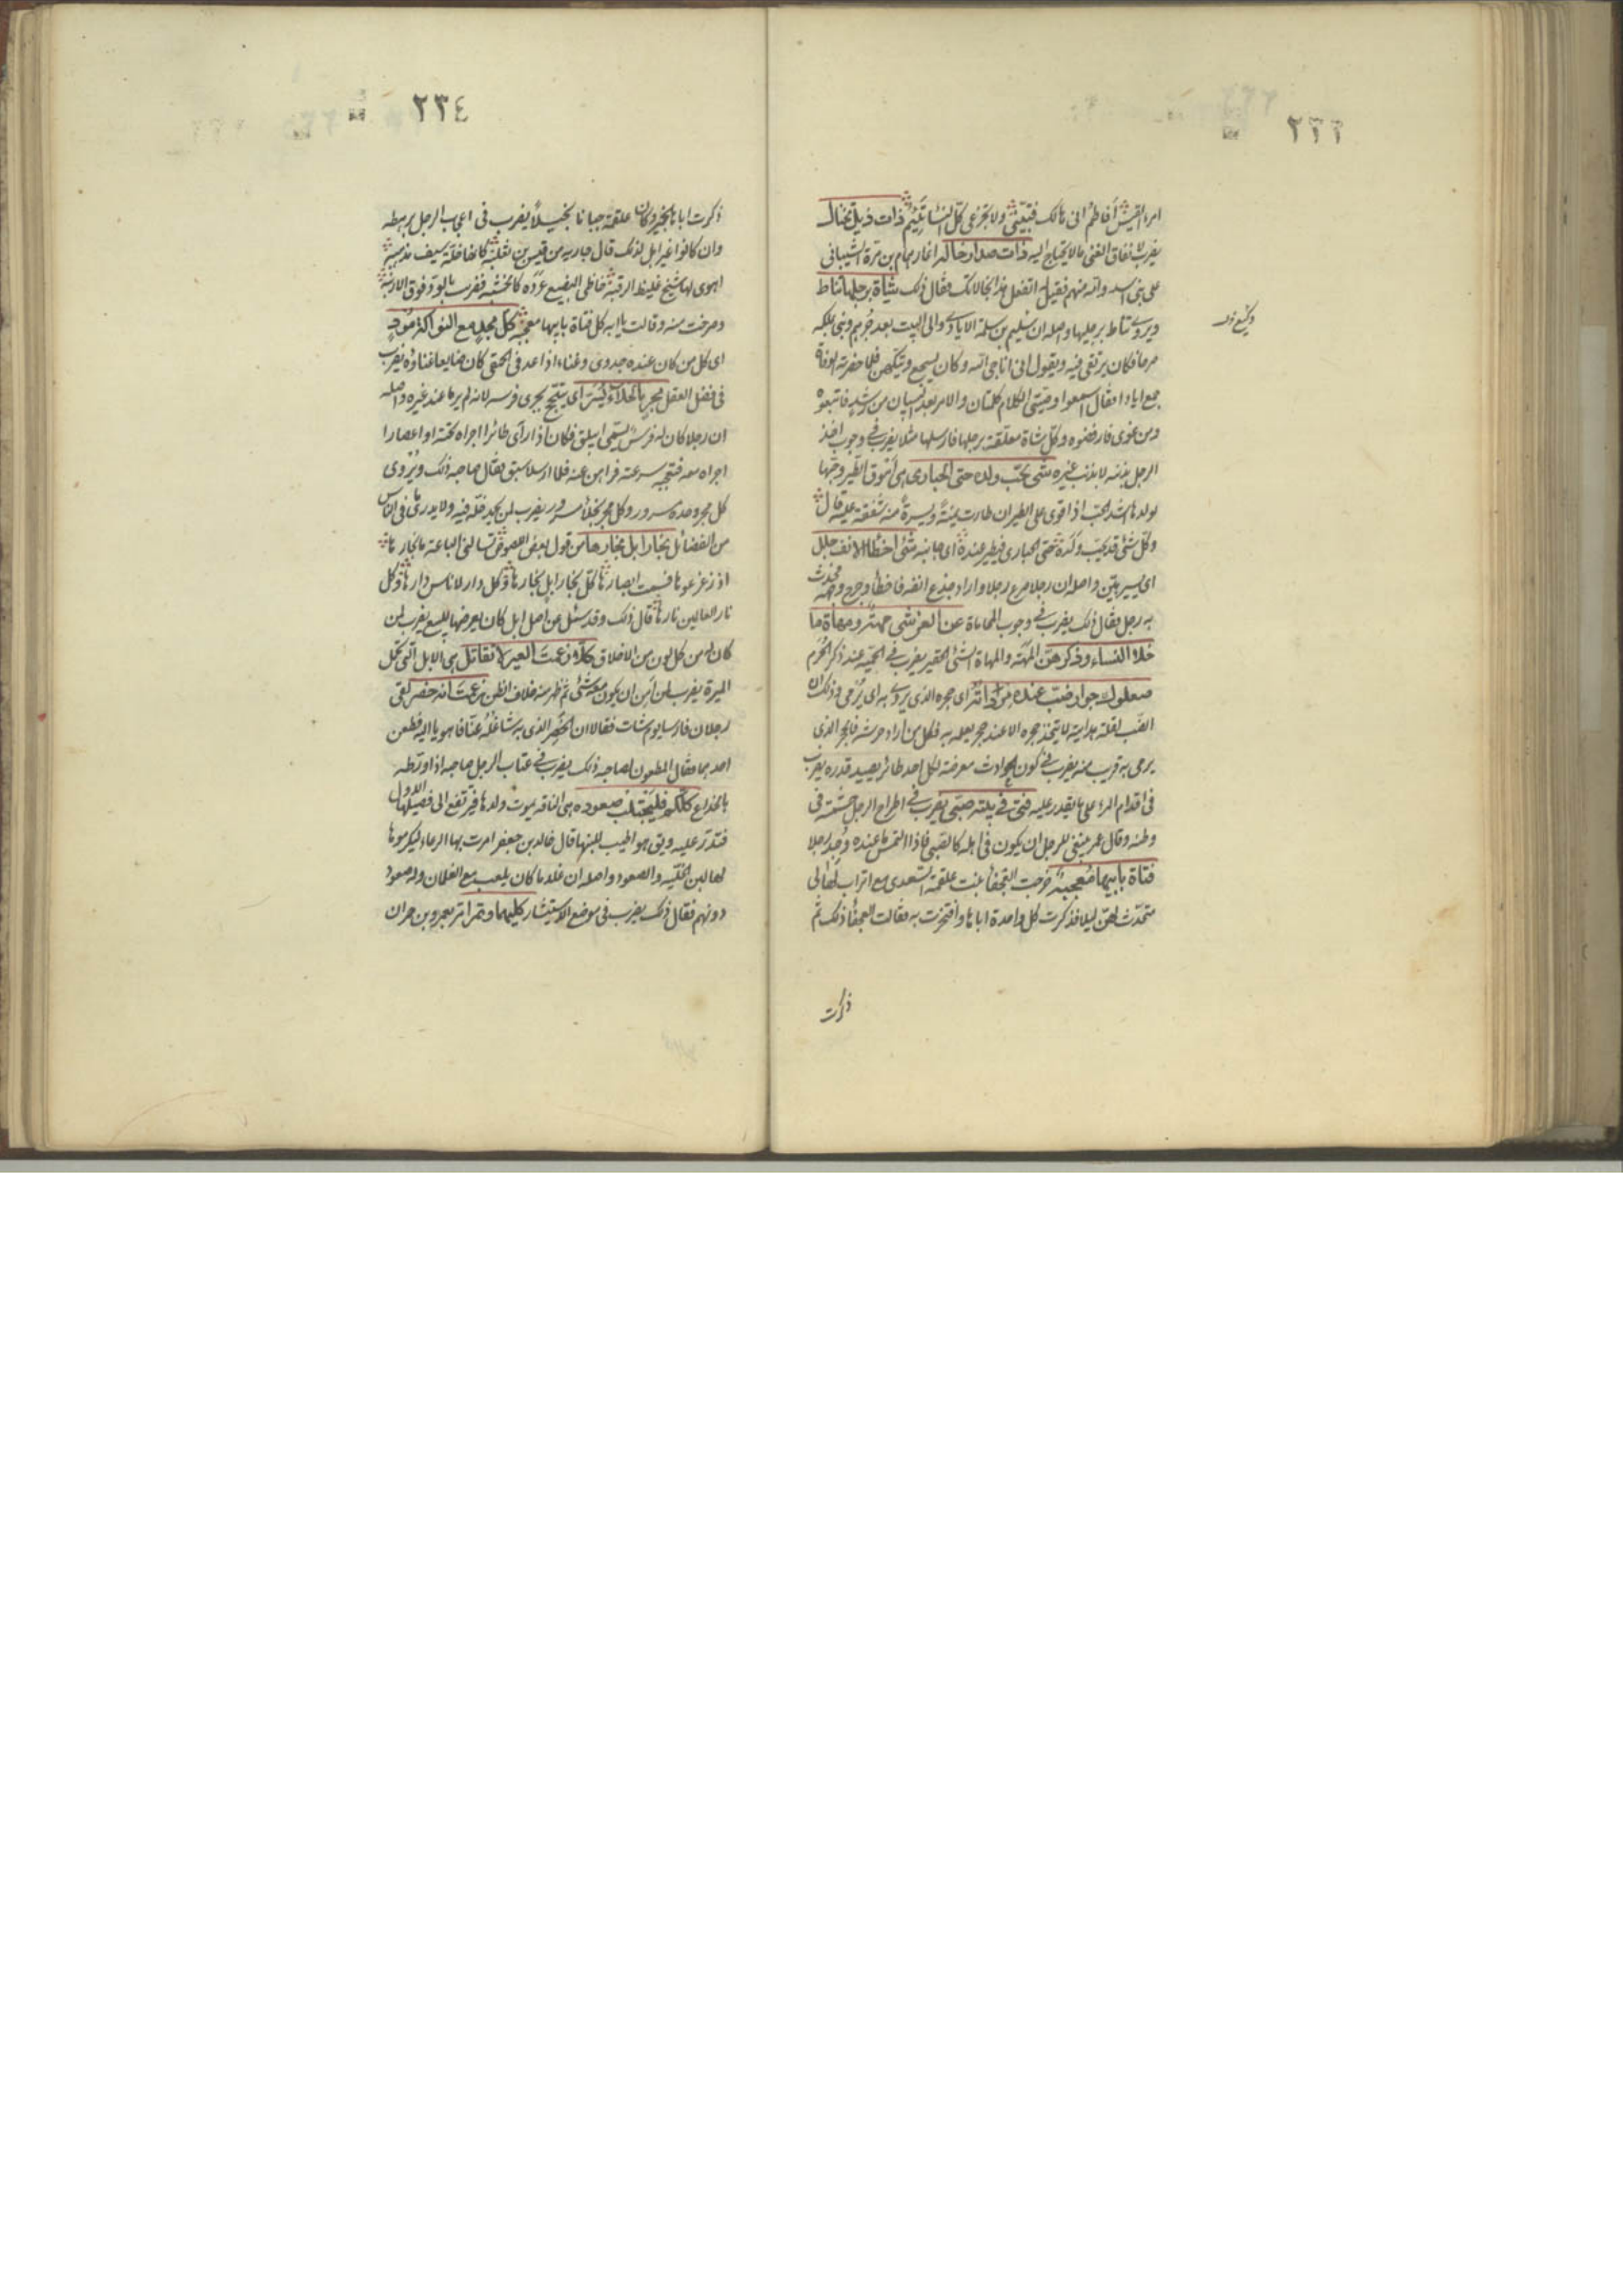 ٢٣٣
امرء القيس أفاطم انى هالك فتبيّنى ولا تجزعى كلّ النساء تَئِيمُ ذات ذيل تختال
يضرب لانفاق الغنى ما لا يحتاج اليه ذات صدار خالة اغار همام بن مرة الشيبانى
على بنى اسد وامه منهم فقيل له اتفعل هذا بخالاتك فقال ذلك شاة برجلها تناط
ويروى تناط برجليها واصله ان سليم بن سلمة الايادى والى البيت بعد جُرهم وبنى بمكة
وكيع خ
صرحا فكان يرتقى فيه ويقول انى اناجى الله وكان يسجع ويتكهن فلما حضرته الوفاة
جمع ايادا فقال اسمعوا وصيتى الكلام كلمتان والامر بعد البيان من رشد فاتبعوه
ومن غوى فارفضوه وكل شاة معلقة برجلها فارسلها مثلا يضرب فى وجوب اخذ
الرجل بذنبه لا بذنب غيره شئ يحبّ ولده حتى الحبارى هى أموق الطير وحبها
لولدها اشد الحب اذا قوى على الطيران طارت يمنةً ويسرةً منه شفقة عليه قال
وكلّ شئ قد يحبّ ولده حتى الحبارى فيطير عنده اى جانبه شئ اخطأ الانف جلل
اى يسير هيّن واصله ان رجلا صرع رجلا واراد جذع انفه فاخطأه وجرح وجهه فحدث
به رجل فقال ذلك يضرب فى وجوب المحاماة عن العرض شئ مهمه ومهاة ما
خلا النساء وذكرهن المهه والمهاة الشئ الحقير يضرب فى الحميّة عند ذكر الحرم
ضب عنده مرداته اى حجره الذى يردى به اى يُرمى وذلك ان
الضب لقلة هدايته لا يتخذ جحره الا عند حجر يعلمه به فكل من اراد حرشه فالحجر الذى
يرمى به قريب منه يضرب فى كون الحوادث معرضة لكل احد طائر يصيد قدره يضرب
فى اقدام المرء على ما يقدر عليه فتى فى بيته صبى يضرب فى اطراح الرجل حشمته فى
وطنه وقال عمر ينبغى للرجل ان يكون فى اهله كالصبى فاذا التمس ما عنده وُجد رجلا
فتاة بابيها مُعجبة خرجت العجفاء بنت علقمة السعدى مع اتراب لها الى
متحدّث لهنّ ليلا فذكرت كل واحدة اباها وافتخرت به فقالت العجفاء ذلك ثم
ذكرت
٢٣٤
ذكرت اباها بخير وكان علقمة جبانا بخيلا يضرب فى اعجاب الرجل برهطه
وان كانوا غير اهل لذلك قال جارية من قيس بن ثعلبة كانها خلّة سيف مذهبه
اهوى لها شيخ غليظ الرقبة خاظى البضيع عرده كالخشبه فضرب بالود فوق الارنبة
وصرخت منه وقالت يا ابه كل فتاة بابيها معجبه كل مجد مع النوكى مُودٍ
اى كل من كان عنده جدوى وغناء اذا عد فى الحمقى كان ضايعا غناؤه يضرب
فى فضل العقل مجرٍ بالخلاء يُسَرُّ اى يبتهج بجرى فرسه لانه لم ير ما عند غيره واصله
ان رجلا كان له فرس يسمى ابيلق فكان اذا رأى طائرا اجراه تحته او اعصارا
اجراه معه فتعجبه سرعته فراهن عنه فلما ارسلا سبق فقال صاحبه ذلك ويُروى
كل مجر وحده مسرور وكل مجر بخلاء مسرور يضرب لمن يحمد خلّة فيه ولا يدرى ما فى الناس
من الفضائل نجار ابل نجارها من قول بعض اللصوص تسالنى الباعة ما نجارها
اذ زعزعوها فسمت ابصارها كلّ نجار ابل نجارها وكل دار لاناس دارها وكل
نار العالمين نارها قال ذلك وقد سئل عن اصل ابل كان يعرضها للبيع يضرب لمن
كان له من كل لون من الاخلاق كلا زعمت العير لا تقاتل هى الابل التى تحمل
الميرة يضرب لمن أمن ان يكون معه شئ ثم ظهر منه خلاف الظن زعمت انه خصر لقى
رجلان فارسا يوم شات فقالا ان الخصر الذى به شاغله عنّا فاهويا اليه فطعن
احدهما فقال المطعون لصاحبه ذلك يضرب فى عتاب الرجل صاحبه اذا ورّطه
بالخداع كلكم فليحتلب صعوده هى الناقة يموت ولدها فترتفع الى فصيلها الاول
فتدرّ عليه ويق هو اطيب للبنها قال خالد بن جعفر امرت بها الرعاء ليكرموها
لها لبن الخليّة والصعود واصله ان غلاما كان يلعب مع الغلمان وله صعود
دونهم فقال ذلك يضرب فى موضع الاستيثار كليهما وتمرا مر بعمرو بن حمران